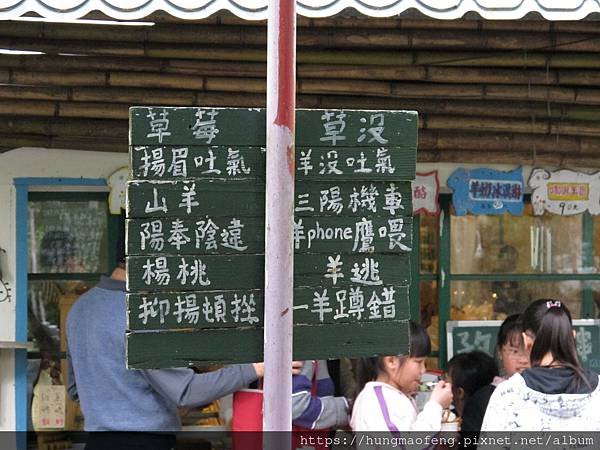 草莓 草没
揚眉吐氣 羊没吐氣
山羊 三陽機車
陽奉陰違 羊phone鷹喂
楊桃 羊逃
抑揚頓挫 一羊蹲錯
羊奶冰淇淋
https://hungmaofeng.pixnet.net/album